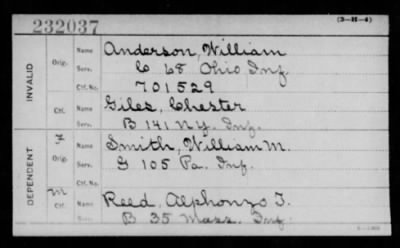 232037
(3-H-4)
INVALID
Orig.
Name Anderson, William
Serv. C 68 Ohio Inf.
Ctf. No. 701529
Ctf.
Name Giles, Chester
Serv. B 141 N.Y. Inf.
DEPENDENT
Orig.
Name Smith, William M.
Serv. G 105 Pa. Inf.
Ctf. No.
Ctf.
Name Reed, Alphonzo T.
Serv. B 35 Mass. Inf.